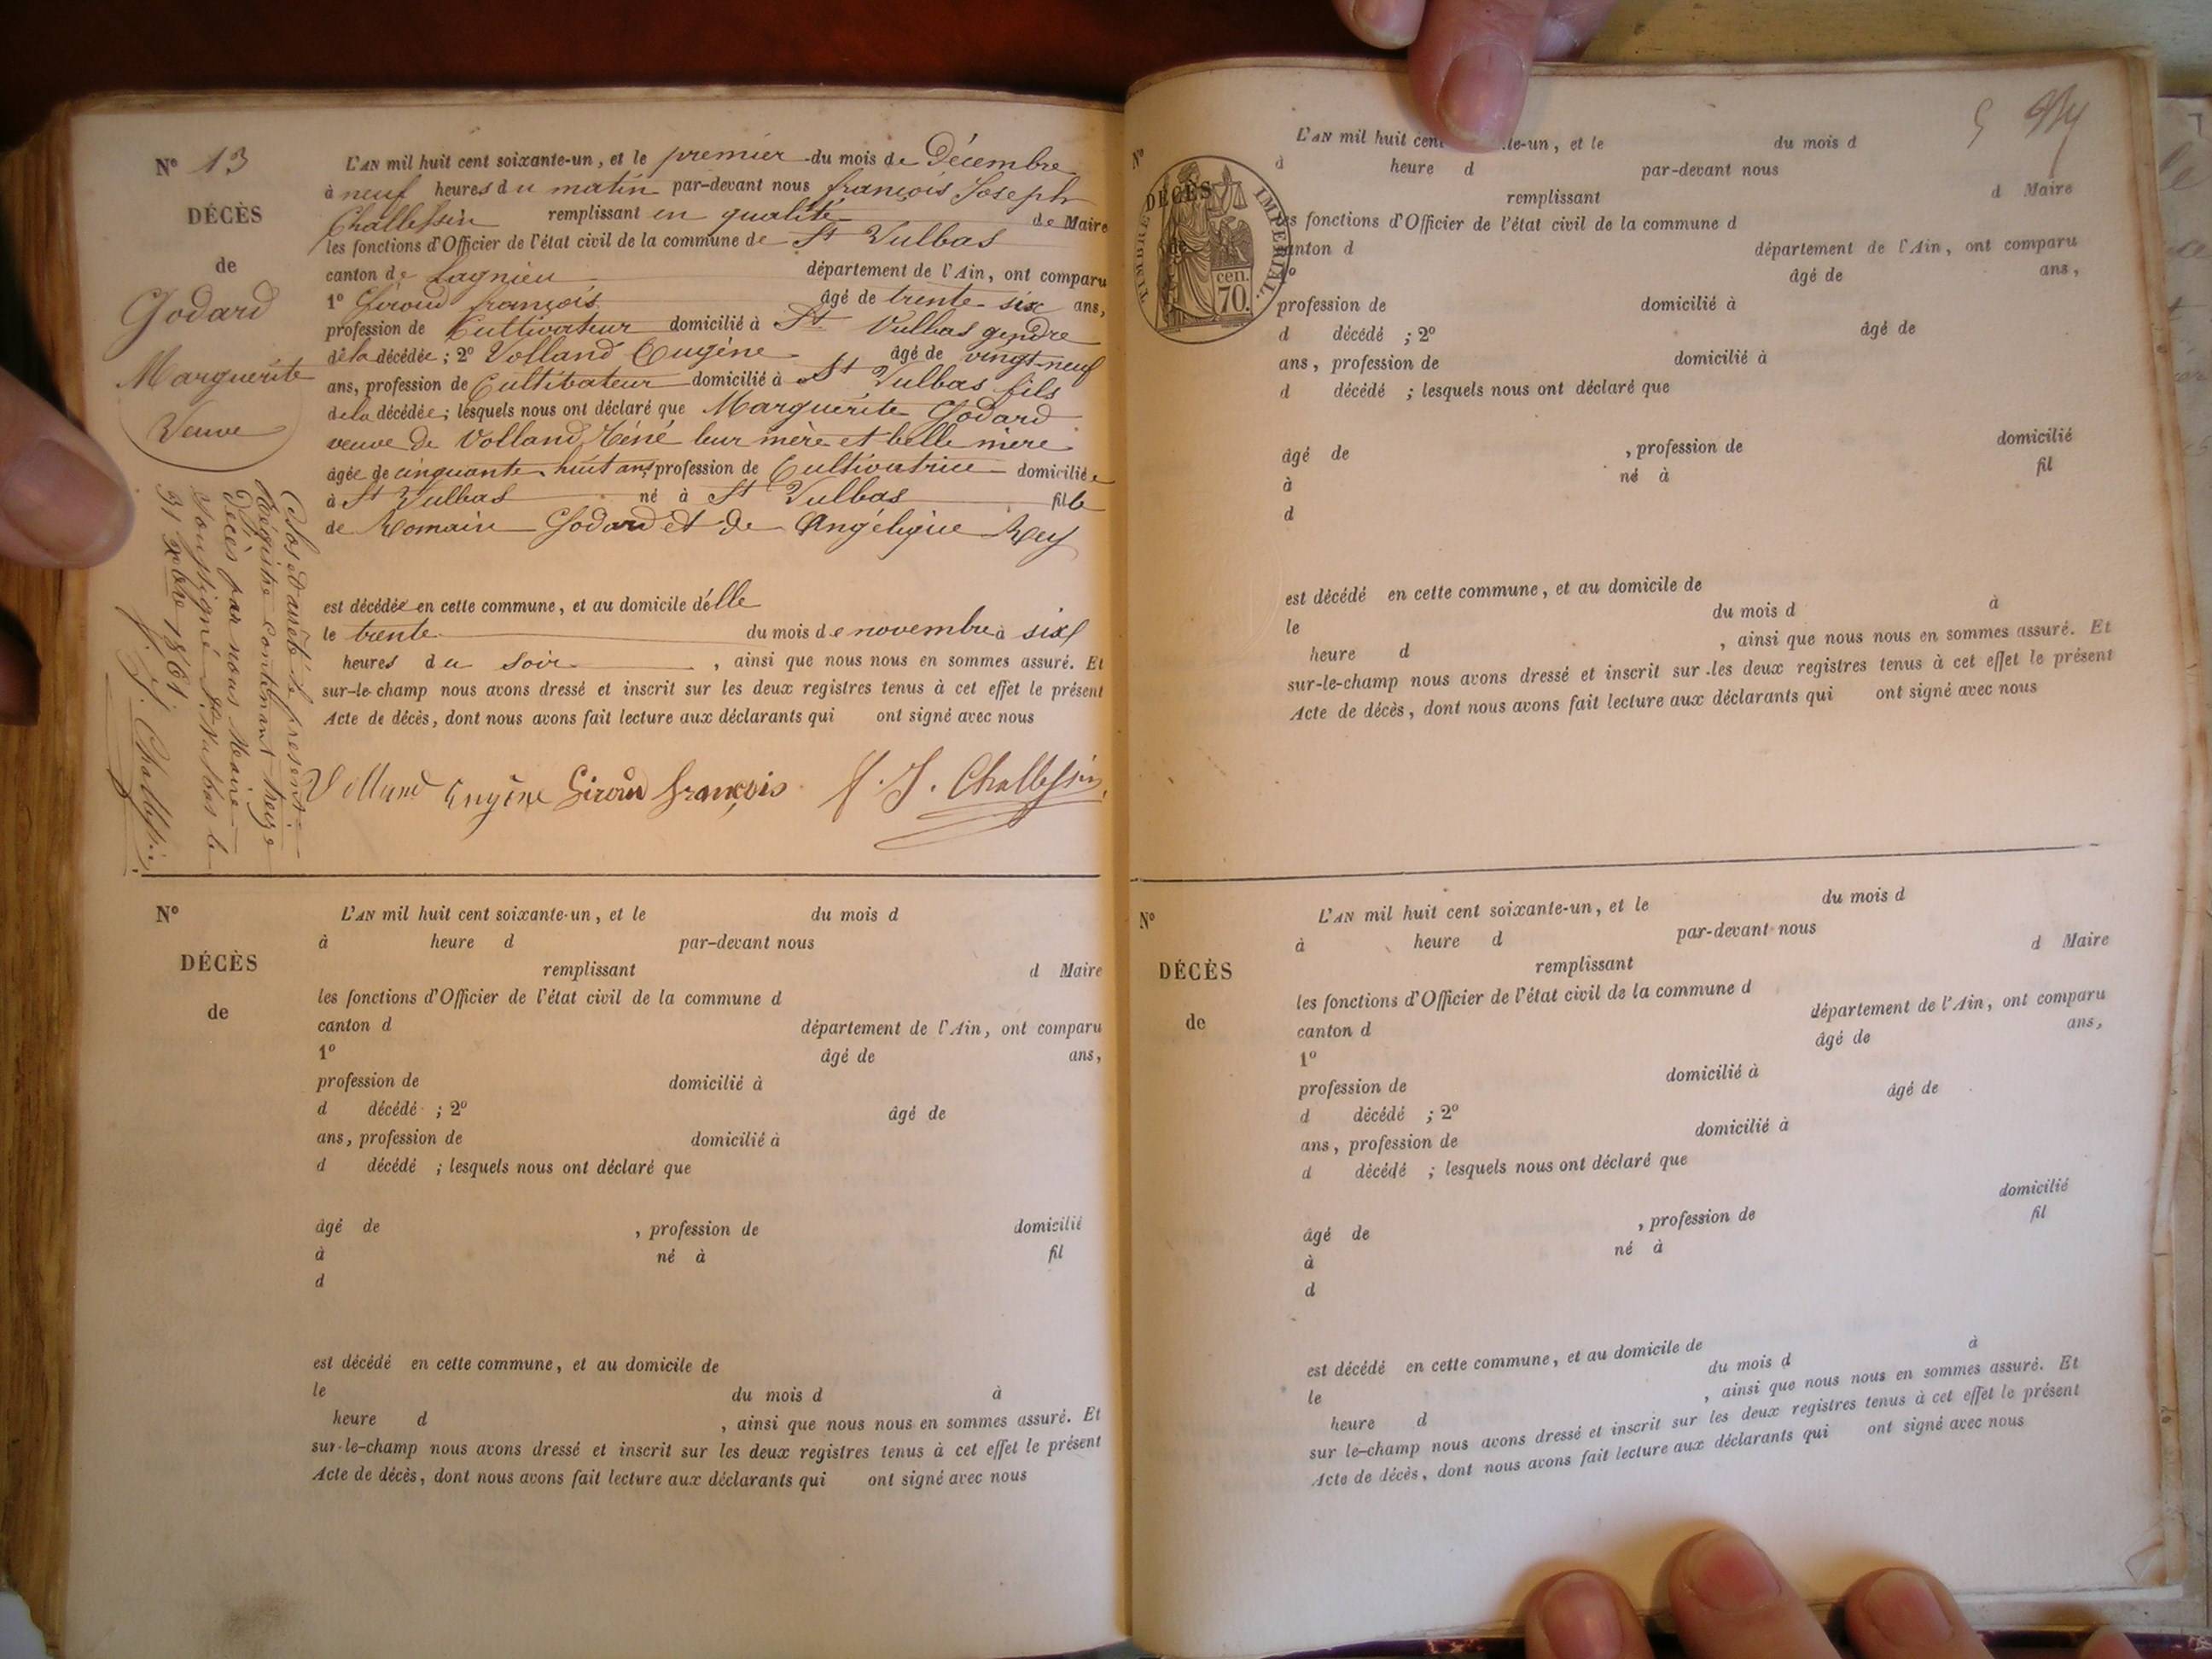 N° 13
DÉCÈS
de
Godard
Marguerite
Veuve
L'AN mil huit cent soixante-un, et le premier du mois de Décembre
à neuf heures du matin par-devant nous françois Joseph
Challessin remplissant en qualité de Maire
les fonctions d'Officier de l'état civil de la commune de St Vulbas
canton de Lagnieu département de l'Ain, ont comparu
1° Giroud françois âgé de trente-six ans,
profession de Cultivateur domicilié à St Vulbas gendre
de la décédée ; 2° Volland Eugène âgé de vingt-neuf
ans, profession de Cultivateur domicilié à St Vulbas fils
de la décédée ; lesquels nous ont déclaré que Marguerite Godard
veuve de Volland Réné leur mère et belle mère
âgée de cinquante huit ans, profession de Cultivatrice domiciliée
à St Vulbas né à St Vulbas fille
de Romain Godard et de Angélique Rey
est décédée en cette commune, et au domicile d'elle
le trente du mois de novembre à six
heures du soir , ainsi que nous nous en sommes assuré. Et
sur-le-champ nous avons dressé et inscrit sur les deux registres tenus à cet effet le présent
Acte de décès, dont nous avons fait lecture aux déclarants qui ont signé avec nous
Volland Eugène Giroud françois f. J. Challessin
Clos et arrêté le présent
Régistre contenant treize
Décès par nous Maire
soussigné St Vulbas le
31 xbre 1861
f. J. Challessin
N°
DÉCÈS
de
L'AN mil huit cent soixante-un, et le du mois d
à heure d par-devant nous
remplissant d Maire
les fonctions d'Officier de l'état civil de la commune d
canton d département de l'Ain, ont comparu
1° âgé de ans,
profession de domicilié à
d décédé ; 2° âgé de
ans, profession de domicilié à
d décédé ; lesquels nous ont déclaré que
âgé de , profession de domicilié
à né à fil
d
est décédé en cette commune, et au domicile de
le du mois d à
heure d , ainsi que nous nous en sommes assuré. Et
sur-le-champ nous avons dressé et inscrit sur les deux registres tenus à cet effet le présent
Acte de décès, dont nous avons fait lecture aux déclarants qui ont signé avec nous
N°
DÉCÈS
de
TIMBRE IMPÉRIAL
cen.
70.
L'AN mil huit cent le-un, et le du mois d
à heure d par-devant nous
remplissant d Maire
les fonctions d'Officier de l'état civil de la commune d
canton d département de l'Ain, ont comparu
1° âgé de ans,
profession de domicilié à
d décédé ; 2° âgé de
ans, profession de domicilié à
d décédé ; lesquels nous ont déclaré que
âgé de , profession de domicilié
à né à fil
d
est décédé en cette commune, et au domicile de
le du mois d à
heure d , ainsi que nous nous en sommes assuré. Et
sur-le-champ nous avons dressé et inscrit sur les deux registres tenus à cet effet le présent
Acte de décès, dont nous avons fait lecture aux déclarants qui ont signé avec nous
N°
DÉCÈS
de
L'AN mil huit cent soixante-un, et le du mois d
à heure d par-devant nous
remplissant d Maire
les fonctions d'Officier de l'état civil de la commune d
canton d département de l'Ain, ont comparu
1° âgé de ans,
profession de domicilié à
d décédé ; 2° âgé de
ans, profession de domicilié à
d décédé ; lesquels nous ont déclaré que
âgé de , profession de domicilié
à né à fil
d
est décédé en cette commune, et au domicile de
le du mois d à
heure d , ainsi que nous nous en sommes assuré. Et
sur le-champ nous avons dressé et inscrit sur les deux registres tenus à cet effet le présent
Acte de décès, dont nous avons fait lecture aux déclarants qui ont signé avec nous